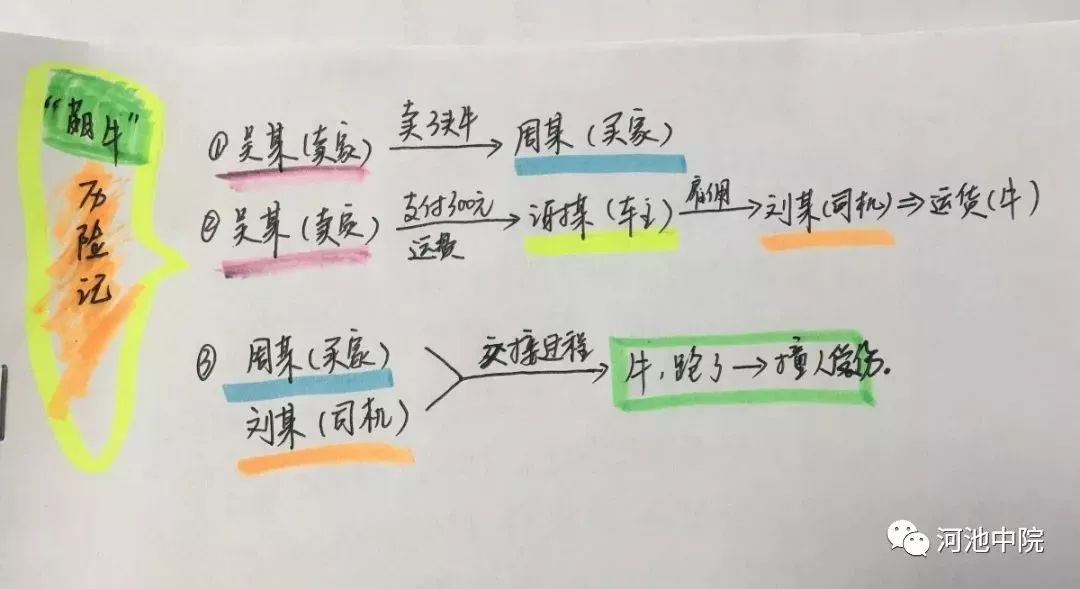 “萌牛”
历
险
记
① 吴某(卖家) 卖了头牛 → 周某(买家)
② 吴某(卖家) 支付300元 → 某(车主) 雇佣 → 刘某(司机) ⇒ 运货(牛)
运费
③ 周某(买家) 交接过程 → 牛,跑了 → 撞人受伤.
刘某(司机)
河池中院